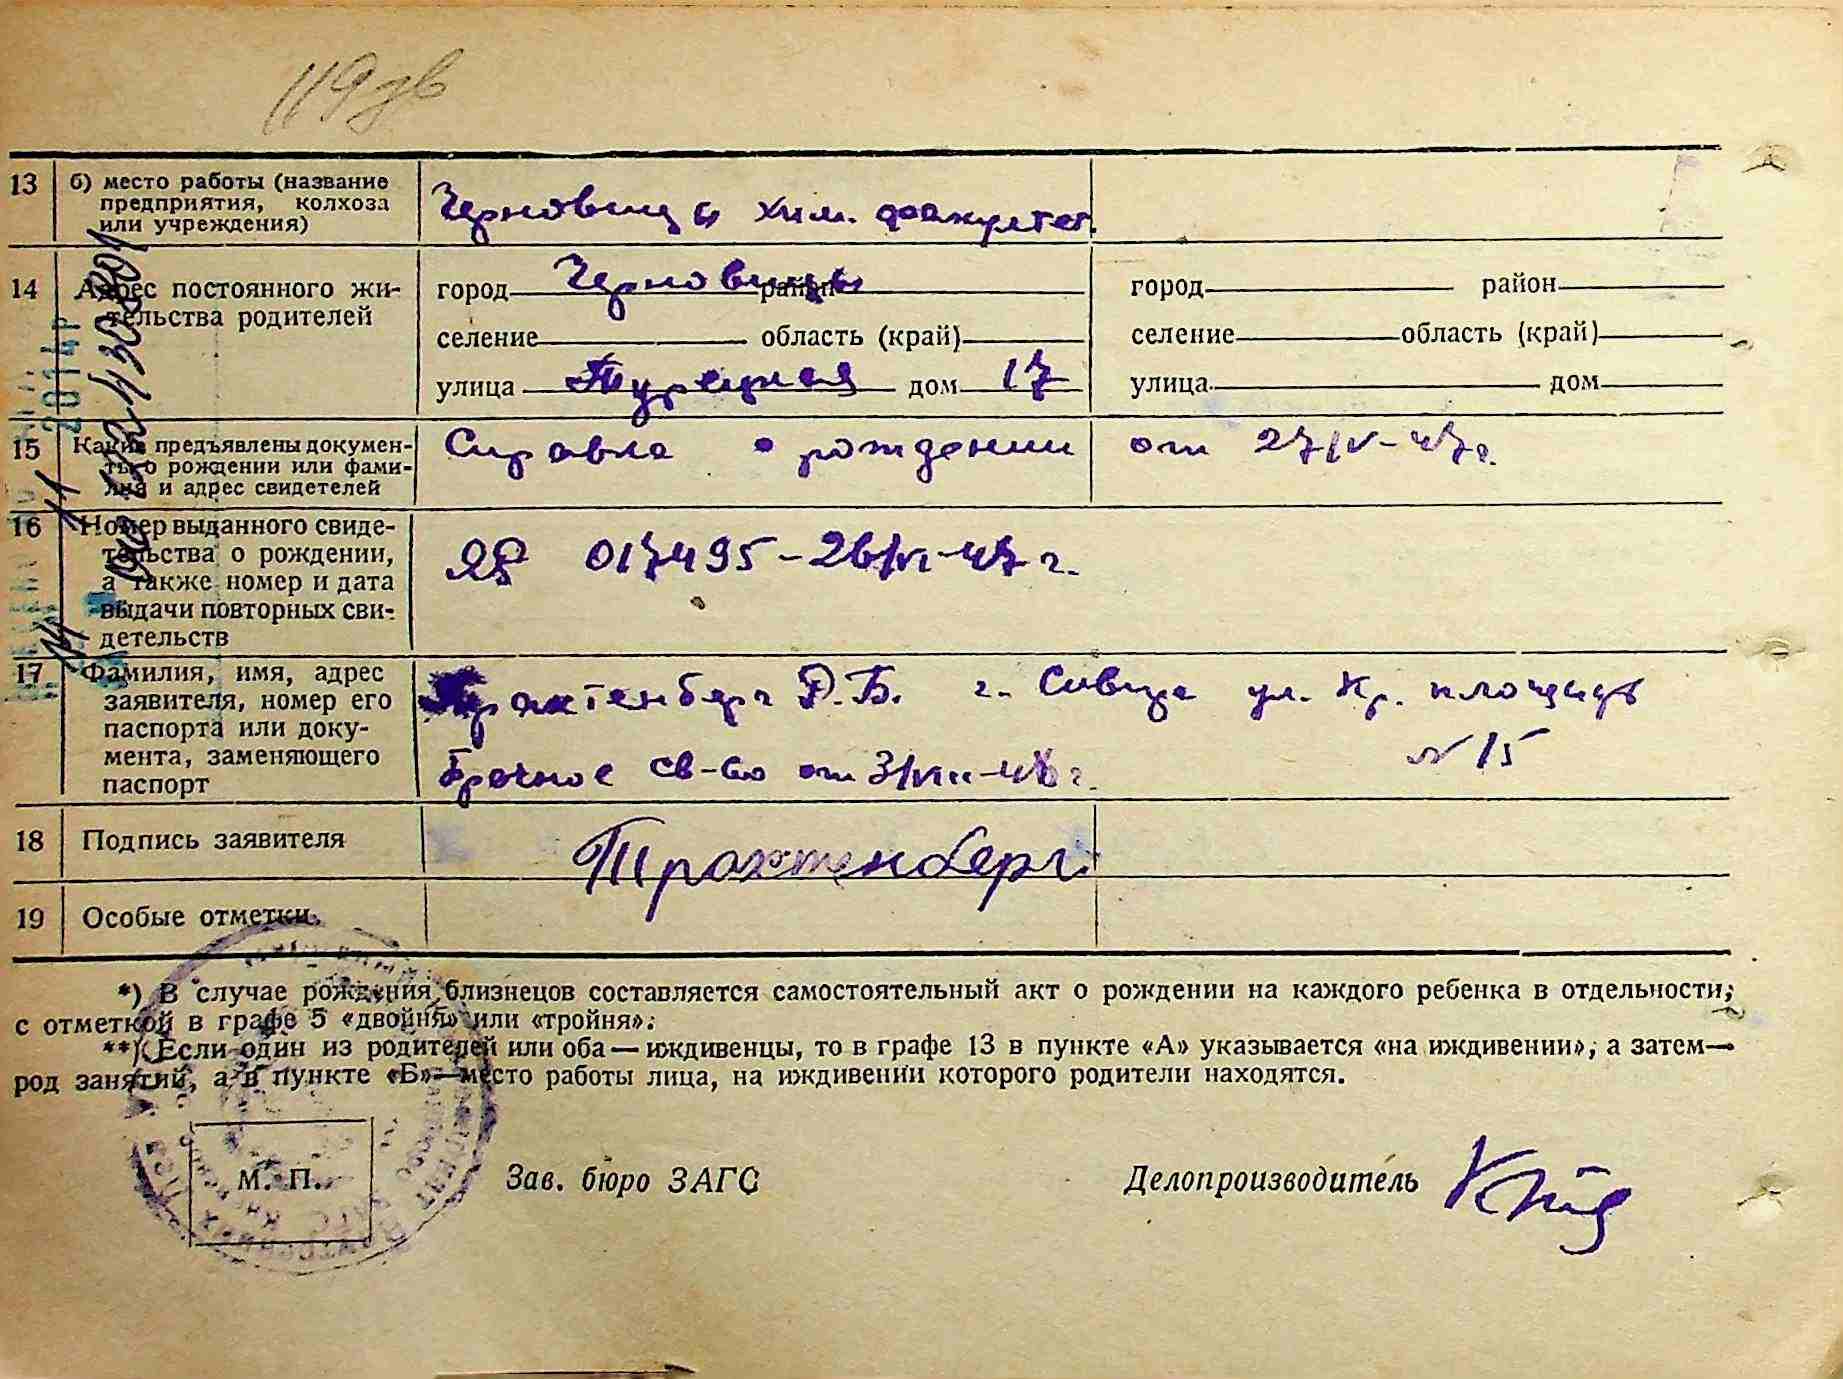 119 дв
13 б) место работы (название предприятия, колхоза или учреждения) Черновицы хим. факультет
14 Адрес постоянного жительства родителей
город Черновицы район город район
селение область (край) селение область (край)
улица Турецкая дом 17 улица дом
15 Какие предъявлены документы о рождении или фамилия и адрес свидетелей Справка о рождении от 27/IV-47г.
16 Номер выданного свидетельства о рождении, а также номер и дата выдачи повторных свидетельств ЯЯ 017495-26/VI-47 г.
17 Фамилия, имя, адрес заявителя, номер его паспорта или документа, заменяющего паспорт
Трахтенберг Р.Б. г. ул. Кр. площадь
N 15
Брачное св-во от 3/VII-46г.
18 Подпись заявителя Трахтенберг.
19 Особые отметки.
*) В случае рождения близнецов составляется самостоятельный акт о рождении на каждого ребенка в отдельности,
с отметкой в графе 5 «двойня» или «тройня».
**) Если один из родителей или оба — иждивенцы, то в графе 13 в пункте «А» указывается «на иждивении», а затем—
род занятий, а в пункте «Б»—место работы лица, на иждивении которого родители находятся.
М. П. Зав. бюро ЗАГС Делопроизводитель
2014р